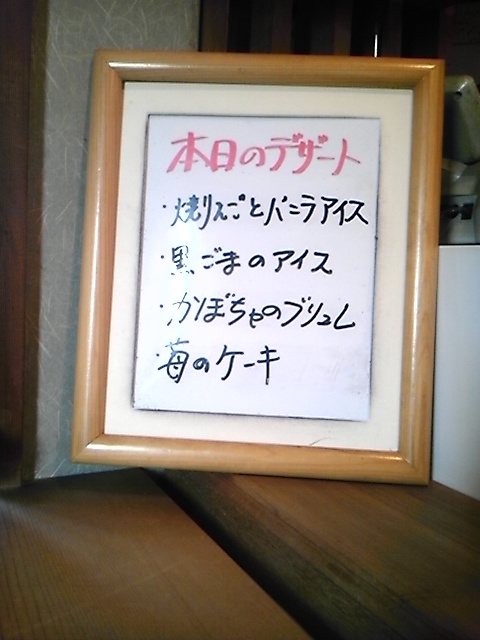 本日のデザート
・焼りんごとバニラアイス
・黒ごまのアイス
・かぼちゃのブリュレ
・苺のケーキ